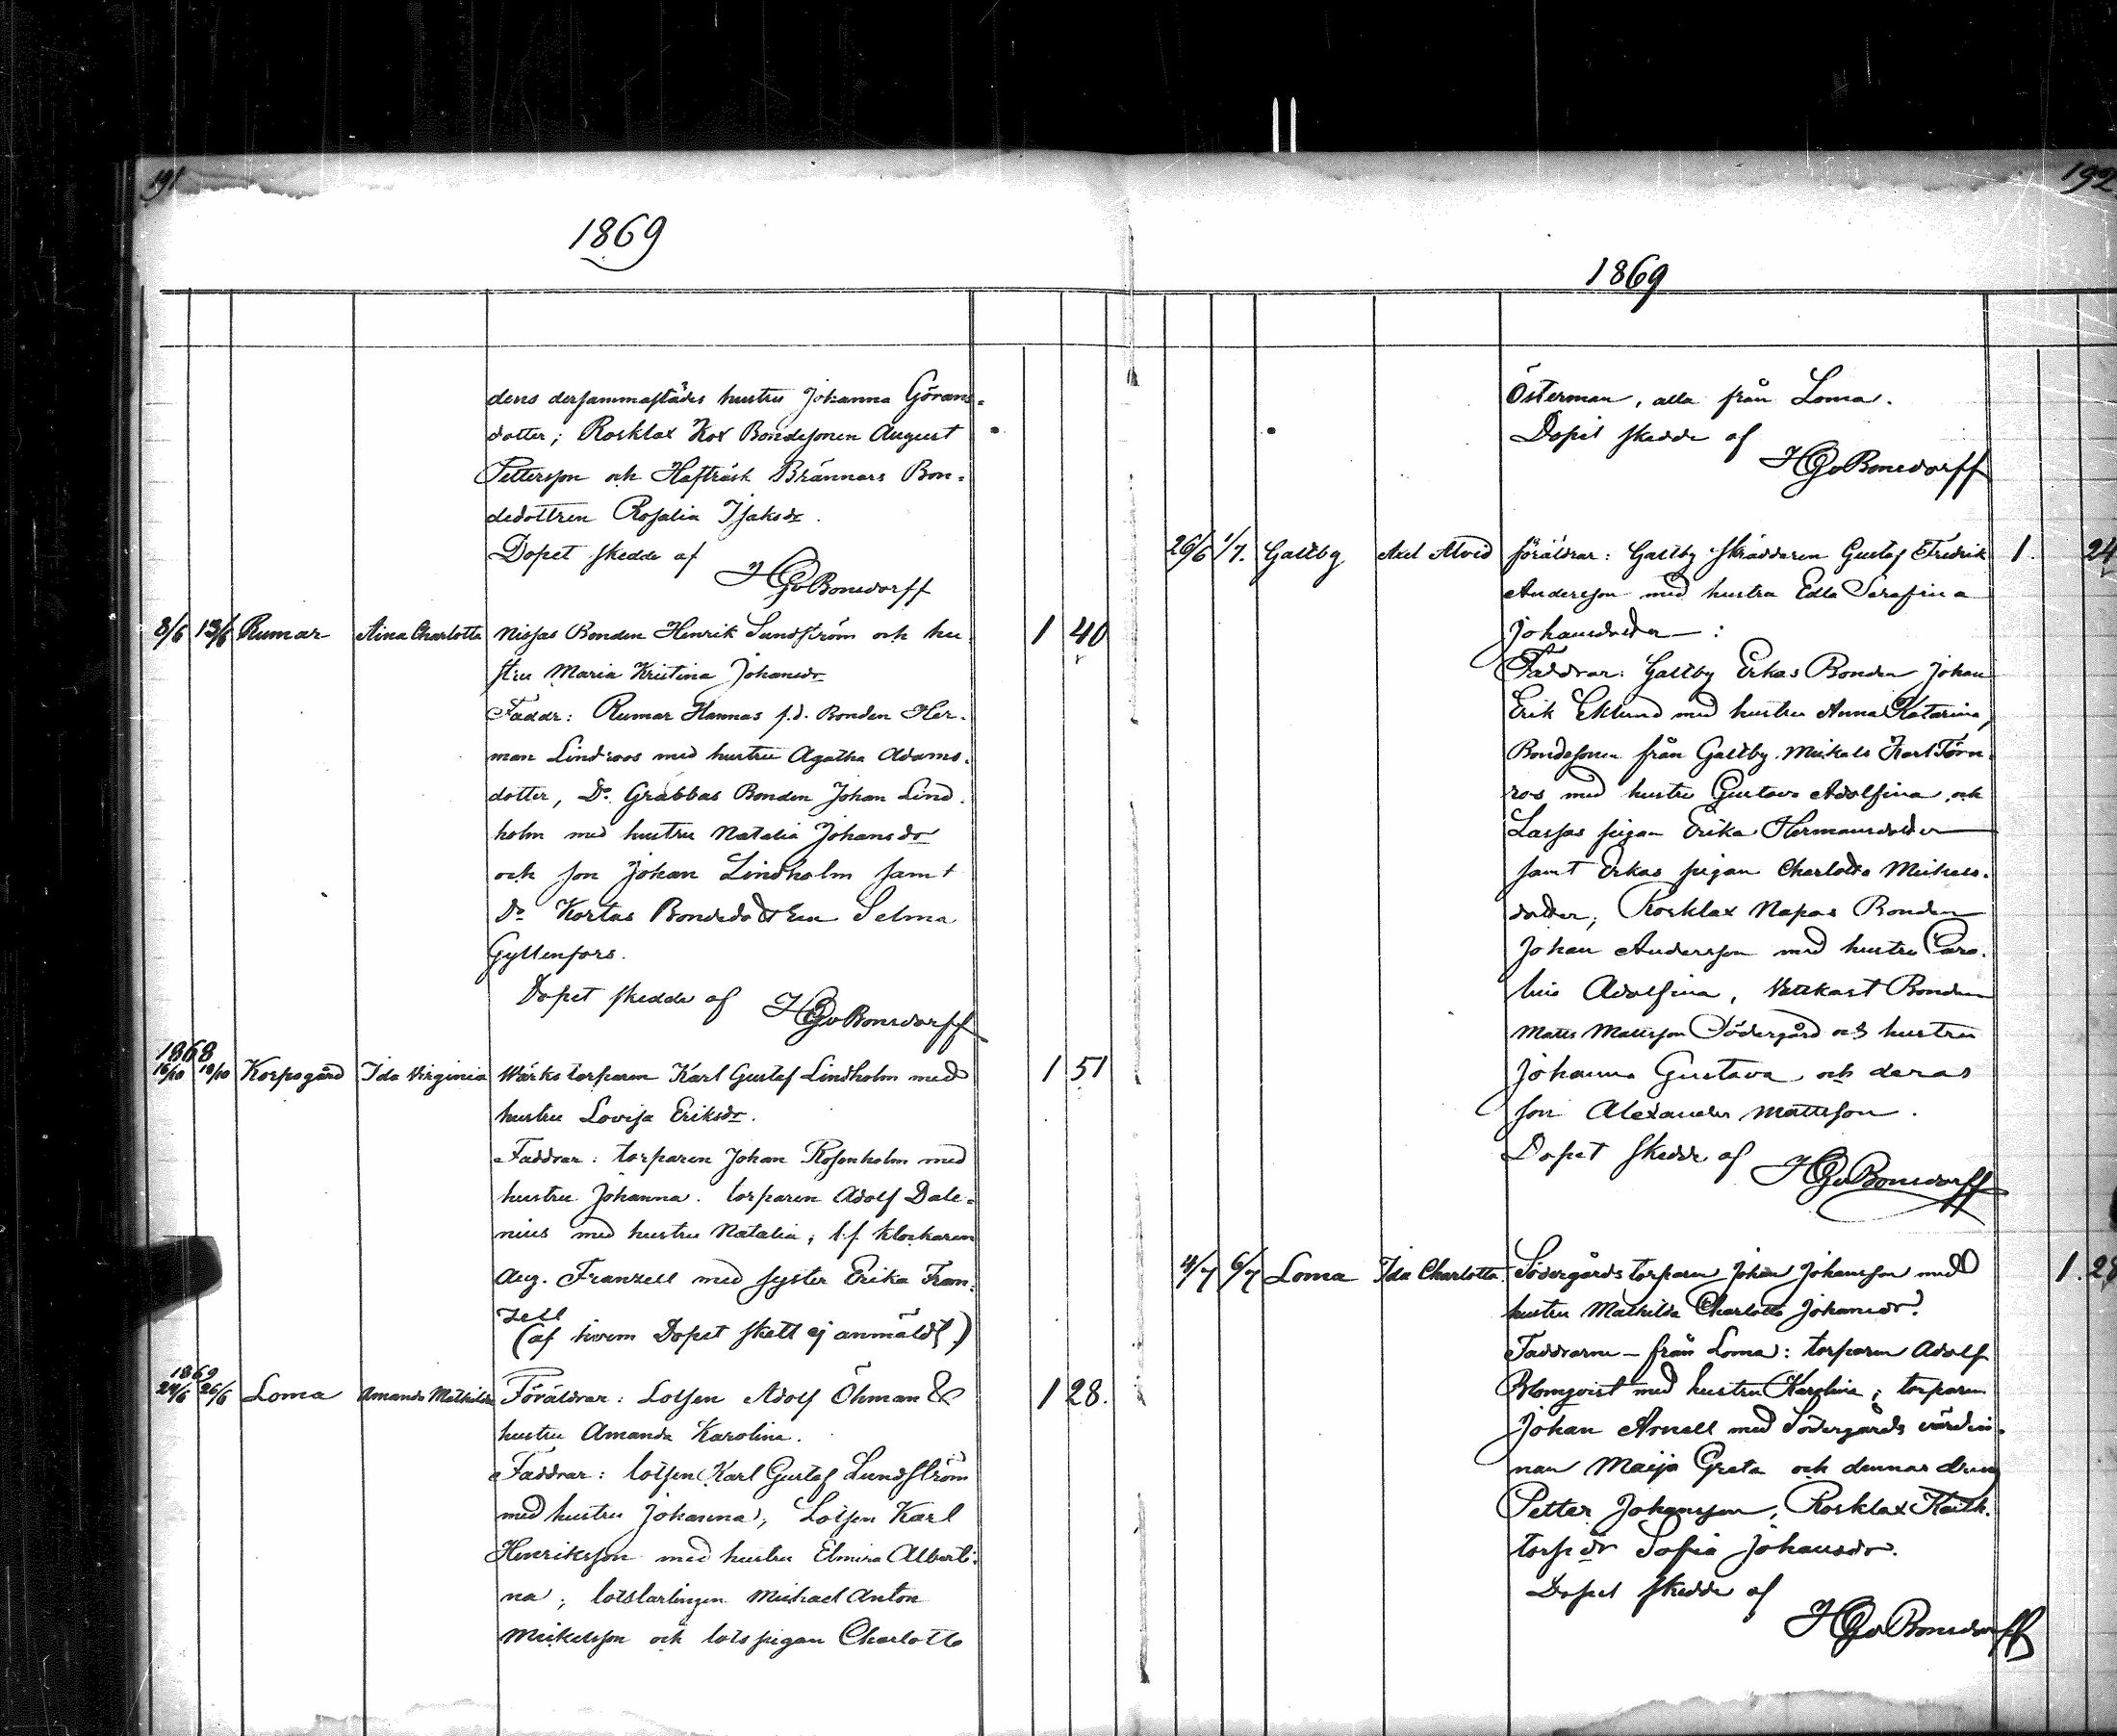 191
1869
dens dersammastädes hustru Johanna Görans-
dotter; Rosklax Kox Bondesonen August
Pettersson och Hafträsk Brännars Bon-
dedottren Rosalia Isaksdr.
Dopet skedde af
HGvBonsdorff
8/6 13/6 Rumar Aina Charlotta Nissas Bonden Henrik Sundström och hu 1 40
stru Maria Kristina Johansdr
Faddr: Rumar Hannas f.d. Bonden Her-
man Lindroos med hustru Agatha Adams-
dotter, Do Grabbas Bonden Johan Lind-
holm med hustru Natalia Johansdr
och son Johan Lindholm samt
Do Kortas Bondedottren Selma
Gyllenfors.
Dopet skedde af HGvBonsdorff
1868
16/10 18/10 Korpogård Ida Virginia Wärkstorparen Karl Gustaf Lindholm med 1 51
hustru Lovisa Eriksdr.
Faddrar: torparen Johan Rosenholm med
hustru Johanna. torparen Adolf Dale-
nius med hustru Natalia; t.f klockaren
Aug. Franzell med syster Erika Fran-
zell
(af hvem Dopet skett ej anmäldt)
1869
24/6 26/6 Loma Amanda Mathilda Föräldrar: Lotsen Adolf Öhman & 1 28.
hustru Amanda Karolina.
Faddrar: lotsen Karl Gustaf Lundström
med hustru Johanna; Lotsen Karl
Henriksson med hustru Elmira Alberti-
na; lotslärlingen Michael Anton
Mickelsson och lotspigan Charlotta
192
1869
Österman, alla från Loma.
Dopet skedde af
HGvBonsdorff
26/6 1/7. Galtby Axel Alvid föräldrar: Galtby Skräddaren Gustaf Fredrik 1. 24
Andersson med hustru Edla Serafina
Johansdotter:
Faddrar: Galtby Erkas Bonden Johan
Erik Eklund med hustru Anna Katarina,
Bondesonen från Galtby Mickels Karl Törn-
ros med hustru Gustava Adolfina, och
Lassas pigan Erika Hermansdotter
samt Erkas pigan Charlotta Mickels-
dotter; Rosklax Napas Bonden
Johan Andersson med hustru Caro-
lina Adolfina, Wattkast Bonden
Matts Mattsson Södergård och hustru
Johanna Gustava och deras
son Alexander Mattsson.
Dopet skedde af HGvBonsdorff
4/7 6/7 Loma Ida Charlotta. Södergårds torparen Johan Johansson med 1. 28
hustru Mathilda Charlotta Johansdr.
Faddrarne – från Loma: torparen Adolf
Blomqvist med hustru Karolina; torparen
Johan Arnell med Södergårds värdin-
nan Maija Greta och dennas dräng
Petter Johansson, Rosklax
torpdr Sofia Johansdr.
Dopet skedde af
HGvBonsdorff